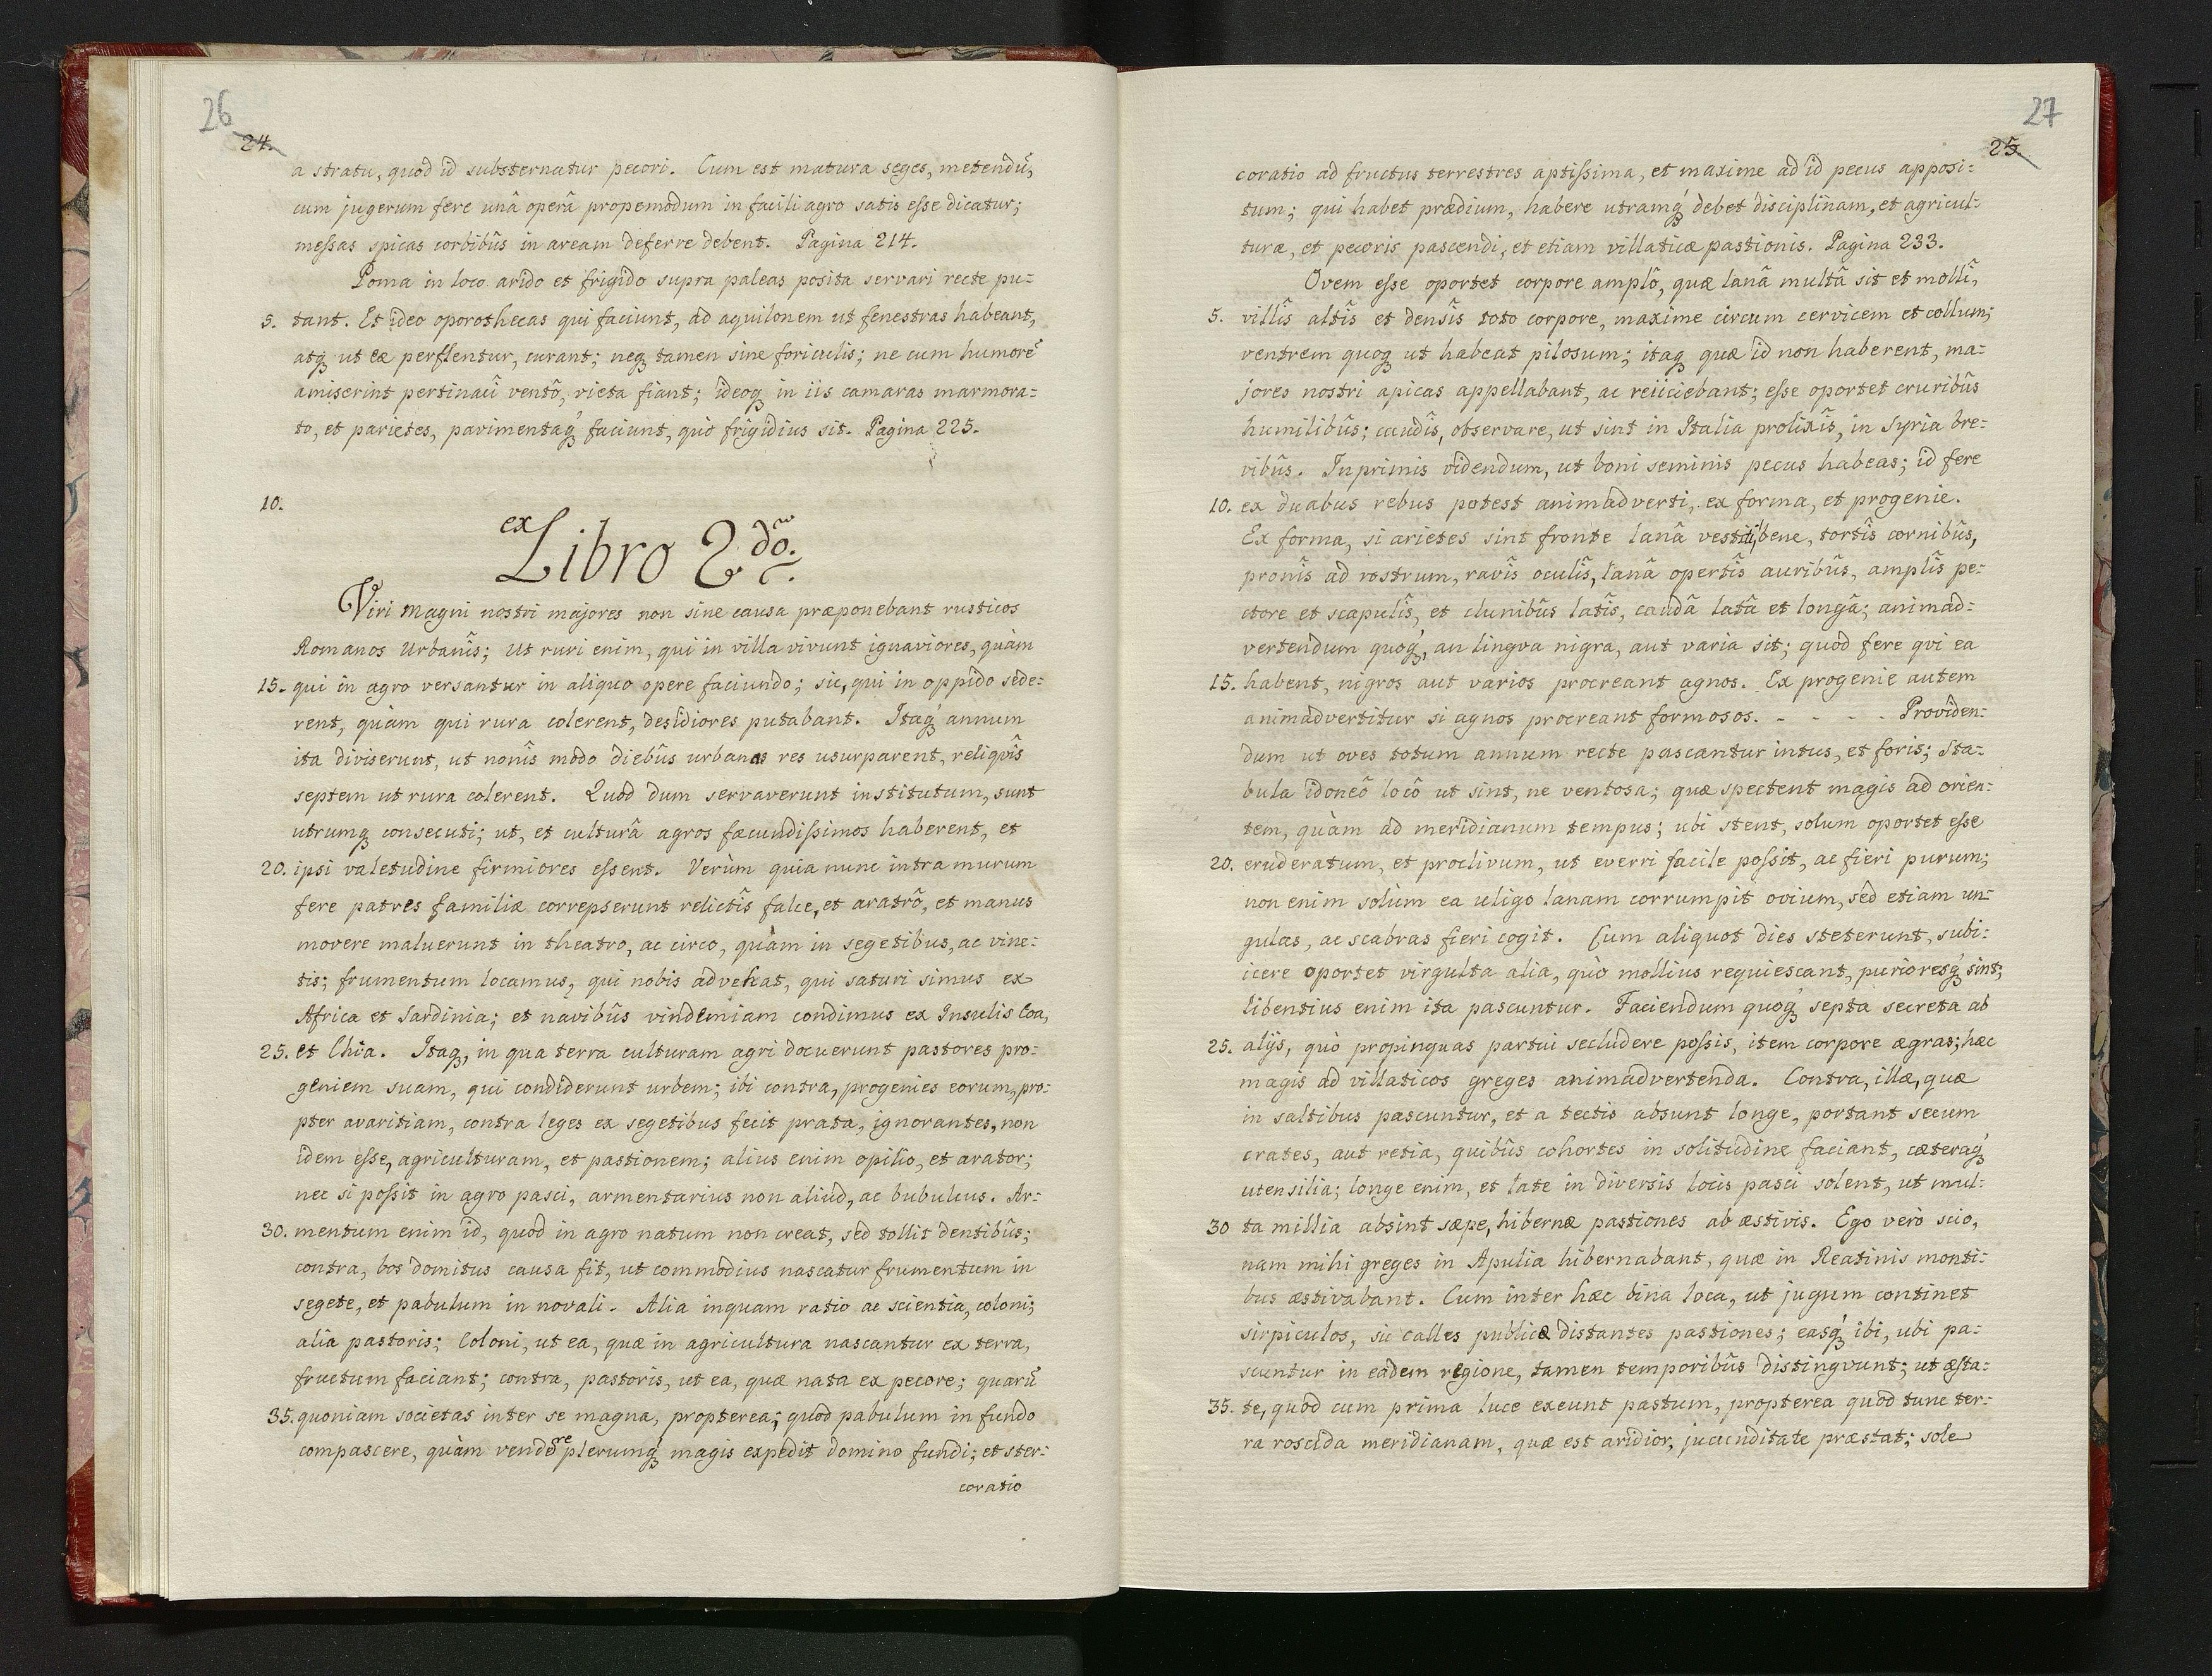 26
24.
a stratu, quod id substernatur pecori. Cum est matura seges, metendū,
cum jugerum fere unâ operâ propemodum in facili agro satis esse dicatur;
messas spicas corbibûs in aream deferre debent. Pagina 214.
Poma in loco arido et frigido supra paleas posita servari recte pu-
5. tant. Et ideo oporothecas qui faciunt, ad aquilonem ut fenestras habeant,
atq ut eæ perflentur, curant; neq tamen sine foriculis; ne cum humorē
amiserint pertinaci ventô, vieta fiant; ideoq in iis camaras marmora-
to, et parietes, pavimentaq́ faciunt, quò frigidius sit. Pagina 225.
10.
ex Libro 2do.
Viri magni nostri majores non sine causa præponebant rusticos
Romanos Urbanîs; Ut ruri enim, qui in villa vivunt ignaviores, quàm
15. qui in agro versantur in aliquo opere faciundo; sic, qui in oppido sede-
rent, quàm qui rura colerent, desidiores putabant. Itaq́ annum
ita diviserunt, ut nonîs modo diebûs urbanas res usurparent, reliqvîs
septem ut rura colerent. Quod dum servaverunt institutum, sunt
utrumq consecuti; ut, et culturâ agros fæcundissimos haberent, et
20. ipsi valetudine firmiores essent. Verùm quia nunc intra murum
fere patres familiæ correpserunt relictîs falce, et aratrô, et manus
movere maluerunt in theatro, ac circo, quàm in segetibus, ac vine-
tis; frumentum locamus, qui nobis advehat, qui saturi simus ex
Africa et Sardinia; et navibûs vindemiam condimus ex Insulis Coa,
25. et Chia. Itaq, in qua terra culturam agri docuerunt pastores pro-
geniem suam, qui condiderunt urbem; ibi contra, progenies eorum, pro-
pter avaritiam, contra leges ex segetibus fecit prata, ignorantes, non
idem esse, agriculturam, et pastionem; alius enim opilio, et arator;
nec si possit in agro pasci, armentarius non aliud, ac bubulcus. Ar-
30. mentum enim id, quod in agro natum non creat, sed tollit dentibûs;
contra, bos domitus causa fit, ut commodius nascatur frumentum in
segete, et pabulum in novali. Alia inquam ratio ac scientia, coloni;
alia pastoris; Coloni, ut ea, quæ in agricultura nascantur ex terra,
fructum faciant; contra, pastoris, ut ea, quæ nata ex pecore; quarū
35. quoniam societas inter se magna, propterea; quod pabulum in fundo
compascere, quàm vendere plerumq́ magis expedit domino fundi; et ster-
coratio
27
25.
coratio ad fructus terrestres aptissima, et maxime ad id pecus apposi-
tum; qui habet prædium, habere utramq́ debet disciplinam, et agricul-
turæ, et pecoris pascendi, et etiam villaticæ pastionis. Pagina 233.
Ovem esse oportet corpore amplô, quæ lanâ multâ sit et mollî,
5. villîs altîs et densîs toto corpore, maxime circum cervicem et collum;
ventrem quoq ut habeat pilosum; itaq quæ id non haberent, ma-
jores nostri apicas appellabant, ac reiiciebant; esse oportet cruribûs
humilibûs; caudîs, observare, ut sint in Italia prolixîs, in Syria bre-
vibûs. Inprimis videndum, ut boni seminis pecus habeas; id fere
10. ex duabus rebus potest animadverti, ex forma, et progenie.
Ex forma, si arietes sint fronte lanâ vestiti bene, tortîs cornibûs,
pronîs ad rostrum, ravîs oculîs, lanâ opertîs auribûs, amplîs pe-
ctore et scapulîs, et clunibûs latîs, caudâ latâ et longâ; animad-
vertendum quoq́, an lingva nigra, aut varia sit; quod fere qvi ea
15. habent, nigros aut varios procreant agnos. Ex progenie autem
animadvertitur si agnos procreant formosos. - - - - Providen-
dum ut oves totum annum recte pascantur intus, et foris; Sta-
bula idoneô locô ut sint, ne ventosa; quæ spectent magis ad orien-
tem, quàm ad meridianum tempus; ubi stent, solum oportet esse
20. eruderatum, et proclivum, ut everri facile possit, ac fieri purum;
non enim solùm ea uligo lanam corrumpit ovium, sed etiam un-
gulas, ac scabras fieri cogit. Cum aliquot dies steterunt, subi-
icere oportet virgulta alia, quò mollius requiescant, purioresq́ sint;
libentius enim ita pascuntur. Faciendum quoq́ septa secreta ab
25. alijs, quò propinquas partui secludere possis, item corpore ægras; hæc
magis ad villaticos greges animadvertenda. Contra, illæ, quæ
in saltibus pascuntur, et a tectis absunt longe, portant secum
crates, aut retia, quibûs cohortes in solitudine faciant, cæteraq́
utensilia; longe enim, et late in diversis locis pasci solent, ut mul-
30 ta millia absint sæpe, hibernæ pastiones ab æstivis. Ego verò scio,
nam mihi greges in Apulia hibernabant, quæ in Reatinis monti-
bus æstivabant. Cum inter hæc bina loca, ut jugum continet
sirpiculos, sic calles publicæ distantes pastiones; easq́ ibi, ubi pa-
scuntur in eadem regione, tamen temporibûs distingvunt; ut æsta-
35. te, quod cum prima luce exeunt pastum, propterea quod tunc ter-
ra roscida meridianam, quæ est aridior, jucunditate præstat; sole